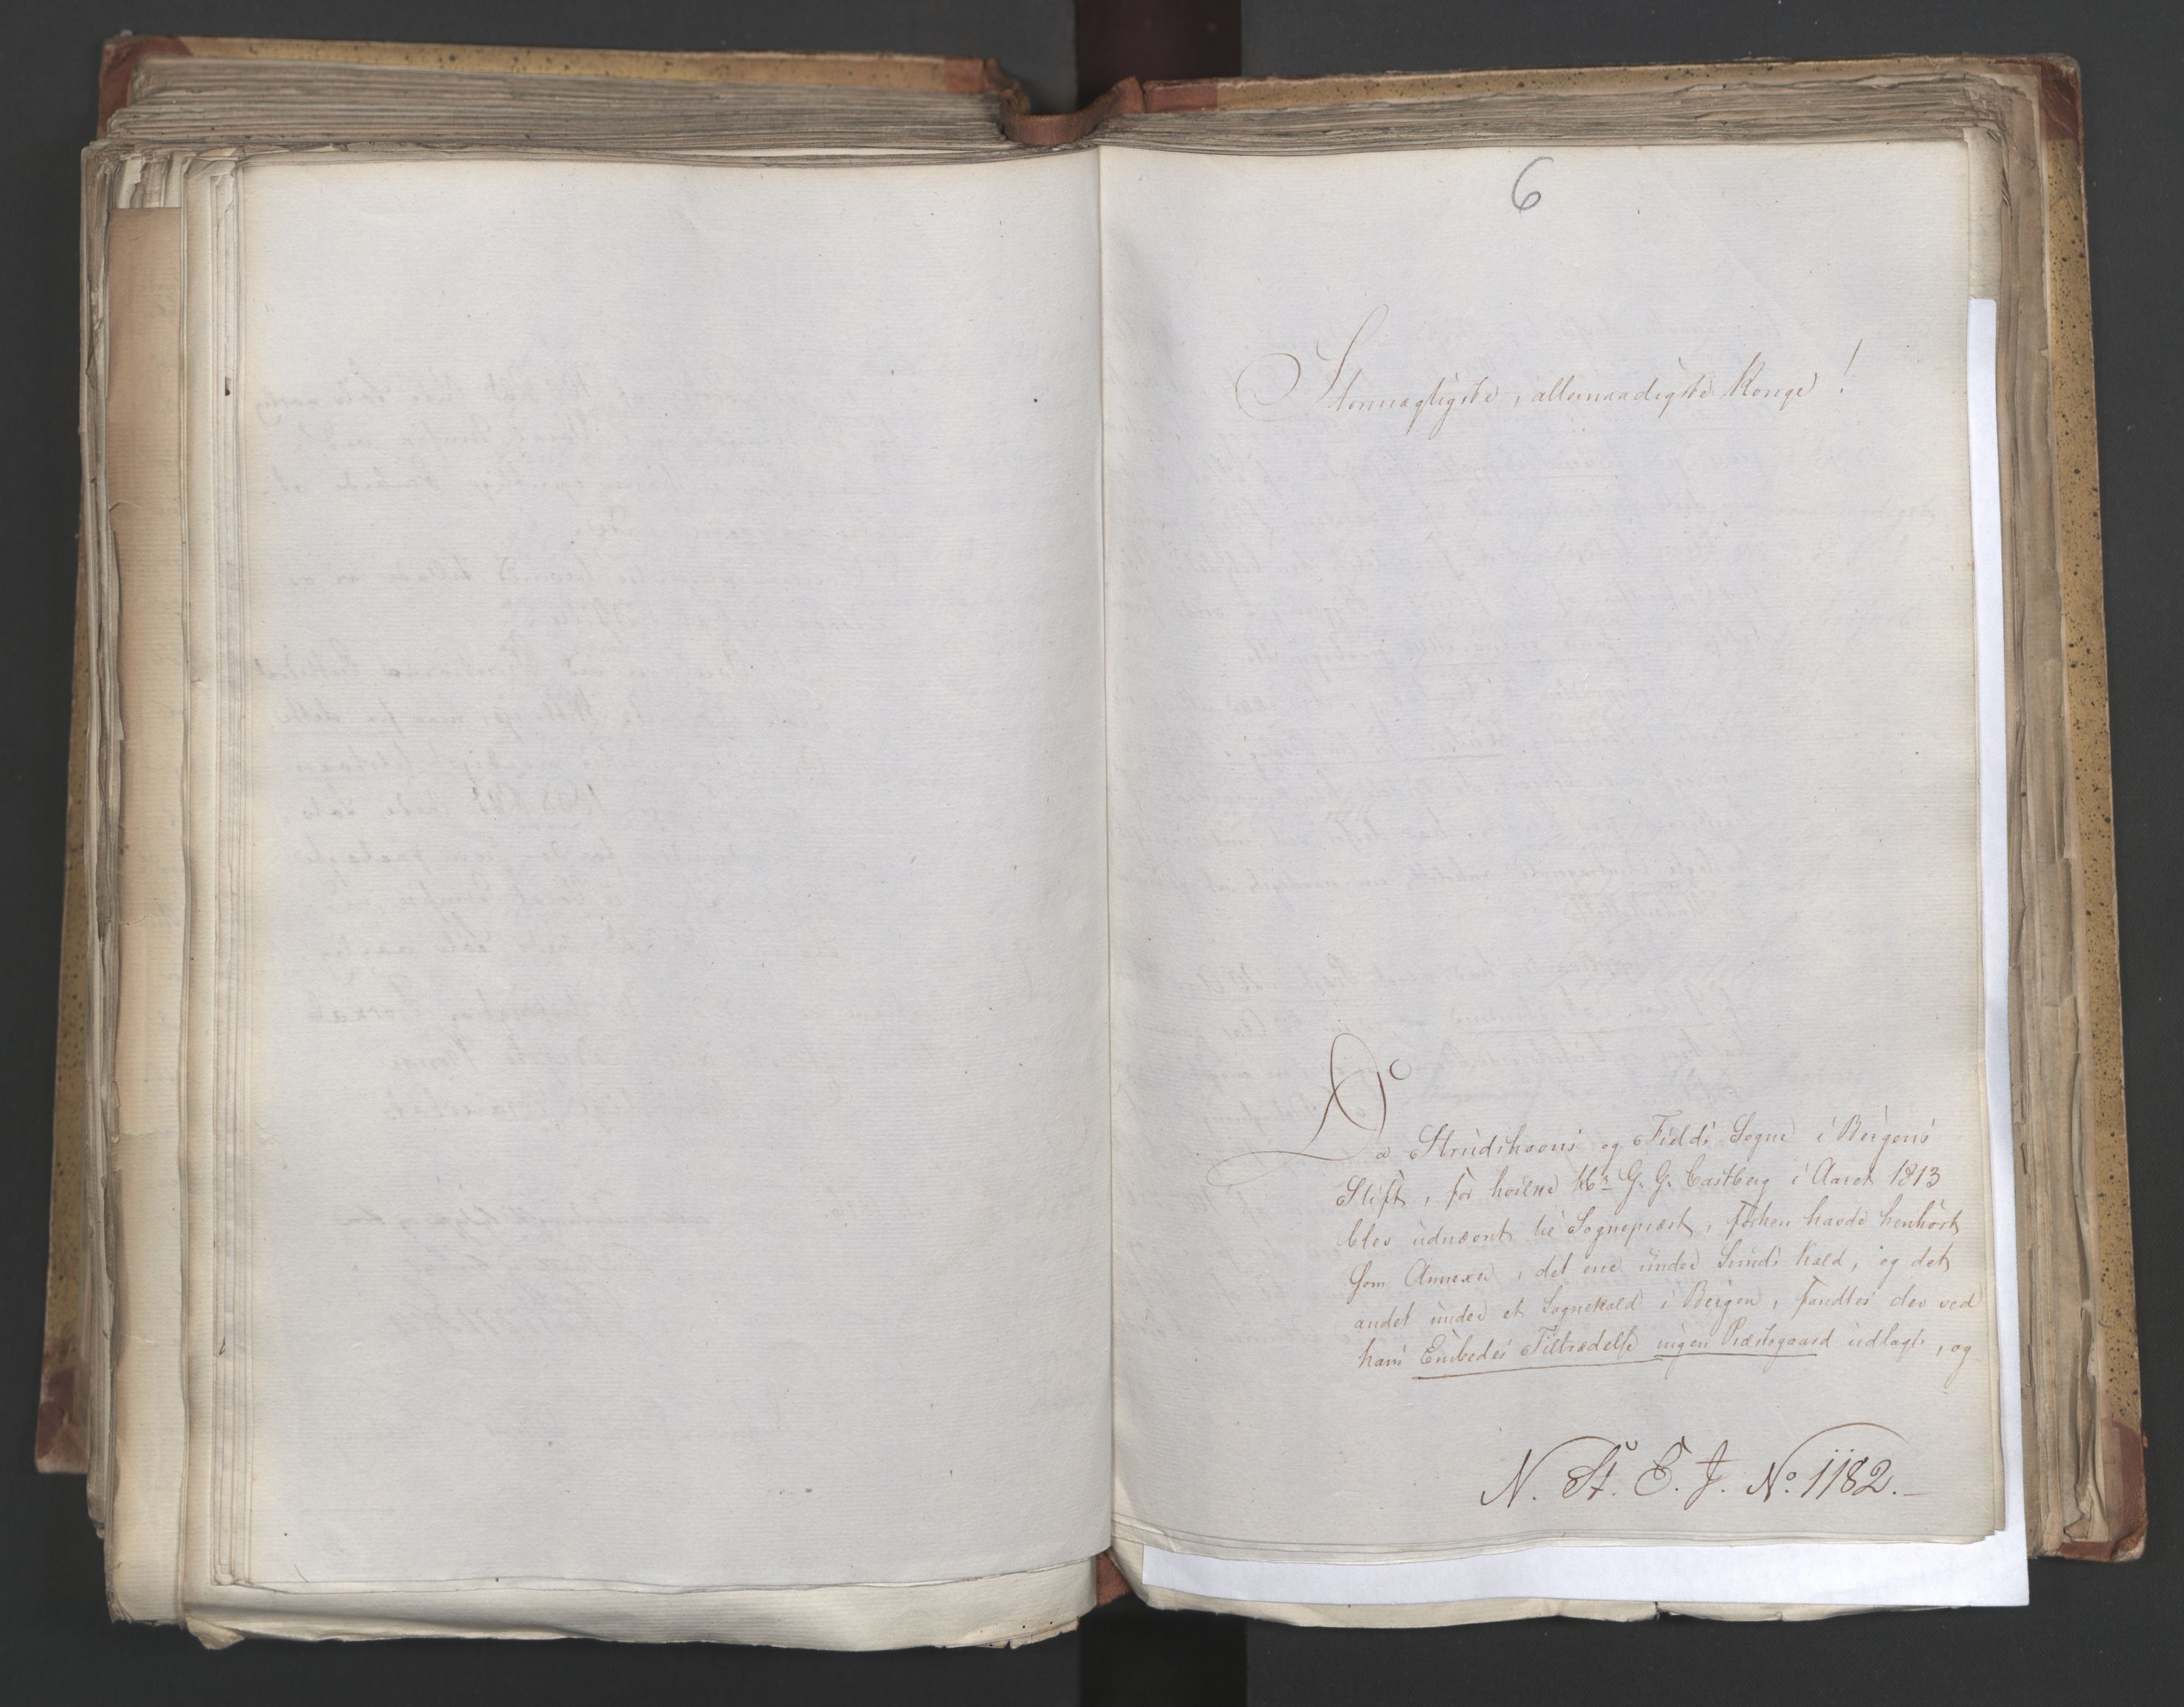 6
Stormægtigste, allernaadigste Konge!
Da Strudshavns og Fields Sogne i Bergens
Stift, for hvilke Hr. G. G. Castberg i Aaret 1813
blev udnævnt til Sognepræst, forhen havde henhørt
som Annexer, det ene under Sunds Kald, og det
andet under et Sognekald i Bergen, fandtes der ved
hans Embedes Tiltrædelse ingen Præstegaard udlagt, og
N. St. E. J. No. 1182.-